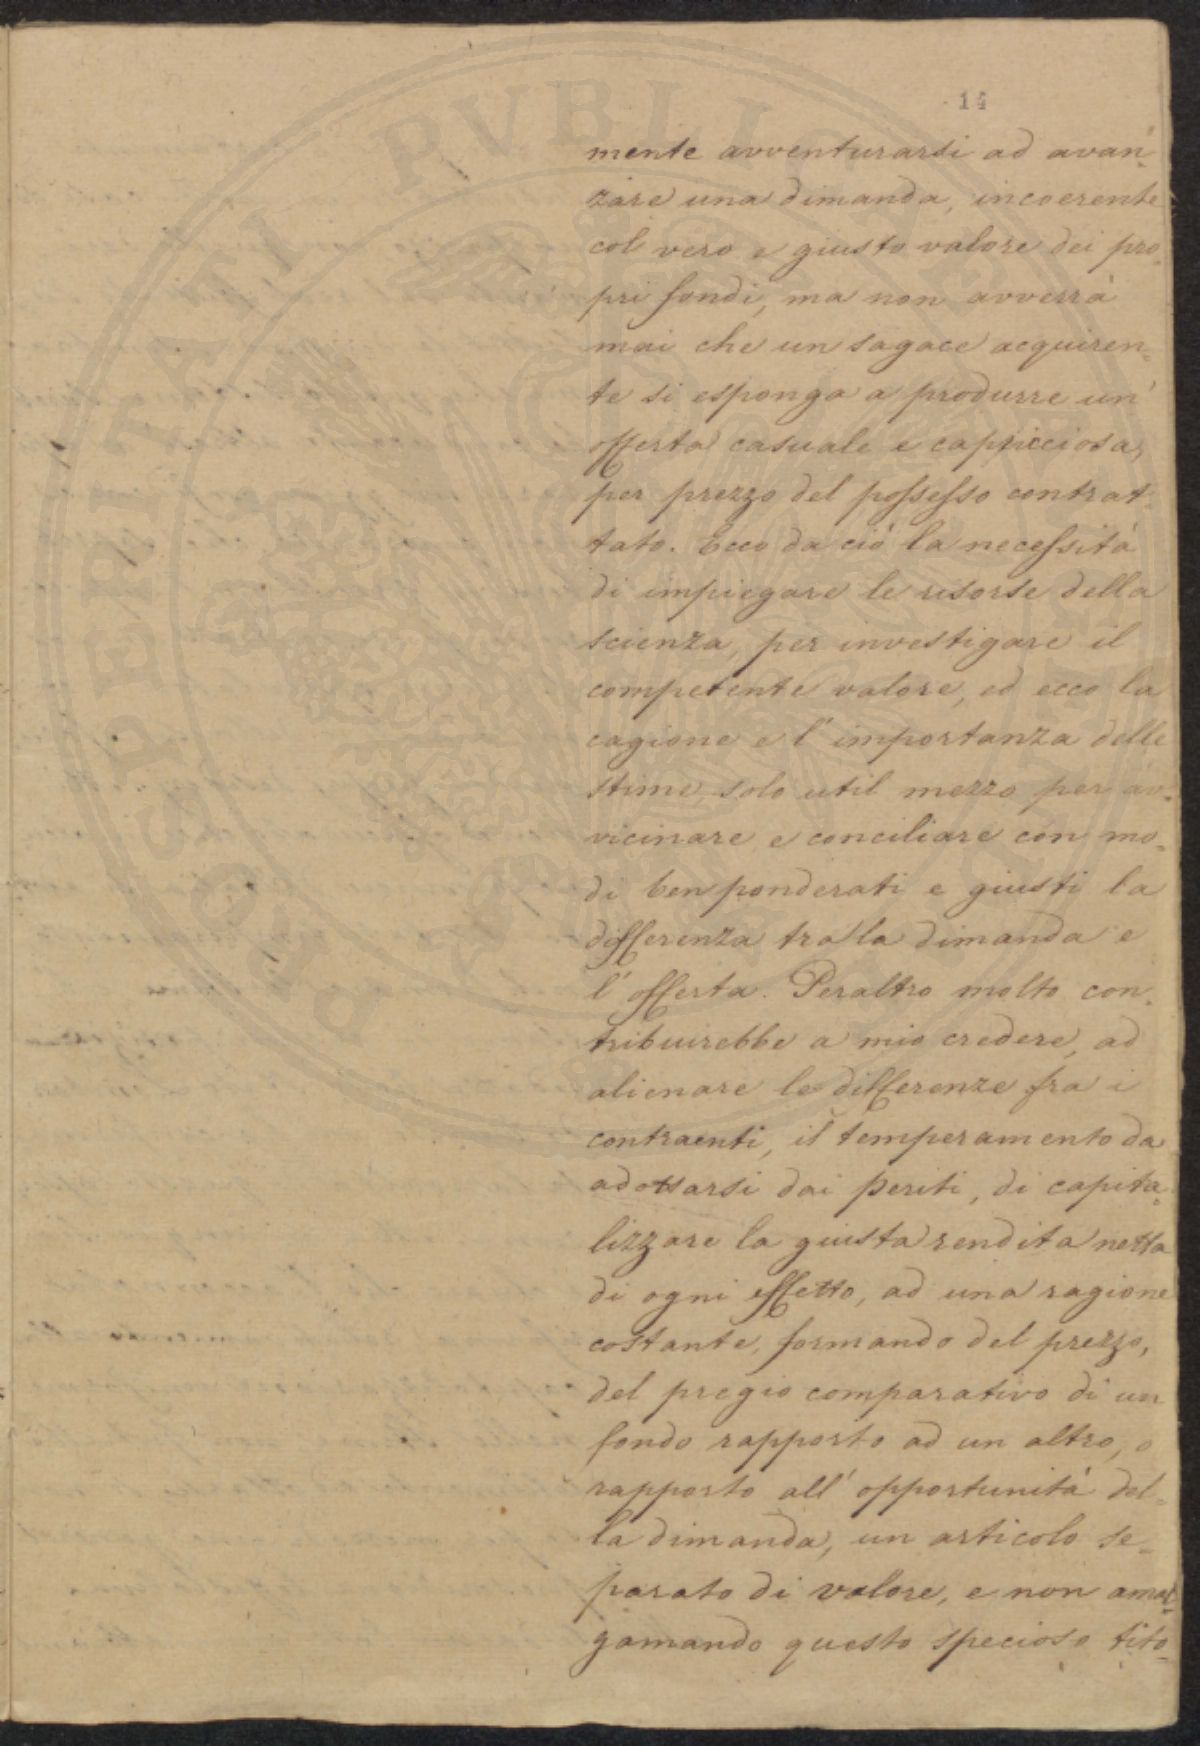 14
mente avventurarsi ad avan-
zare una dimanda, incoerente
col vero e giusto valore dei pro-
pri fondi, ma non avverrà
mai che un sagace acquiren-
te si esponga a produrre un'
offerta casuale e capricciosa,
per prezzo del possesso contrat-
tato. Ecco da ciò la necessità
di impiegare le risorse della
scienza, per investigare il
competente valore, ed ecco la
cagione e l'importanza delle
stime, solo util mezzo per av-
vicinare e conciliare con mo-
di ben ponderati e giusti la
differenza tra la dimanda e
l'offerta. Peraltro molto con-
tribuirebbe a mio credere, ad
alienare le differenze fra i
contraenti, il temperamento da
adottarsi dai periti, di capita-
lizzare la giusta rendita netta
di ogni effetto, ad una ragione
costante, formando del prezzo,
del pregio comparativo di un
fondo rapporto ad un altro, o
rapporto all'opportunità del-
la dimanda, un articolo se-
parato di valore, e non amal-
gamando questo specioso tito-